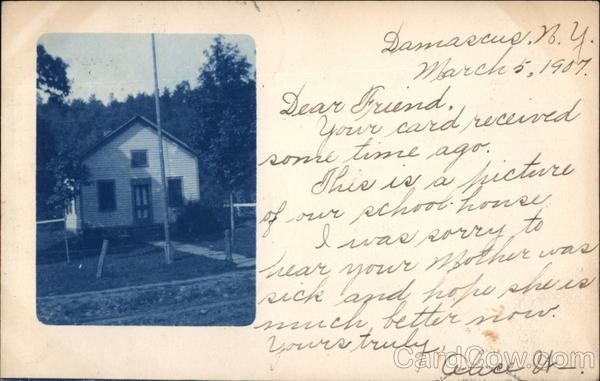 Damascus, N.Y.
March 5, 1907.
Dear Friend.
Your card received
some time ago.
This is a picture
of our school-house
I was sorry to
hear your Mother was
sick and hope she is
much better now.
Yours truly,
Alice H-.
CardCow.com